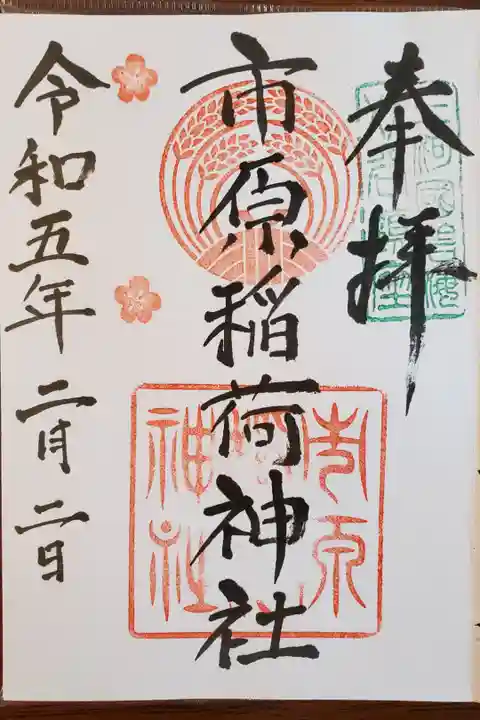 奉拝
市原稲荷神社
市原
神社
令和五年二月二日